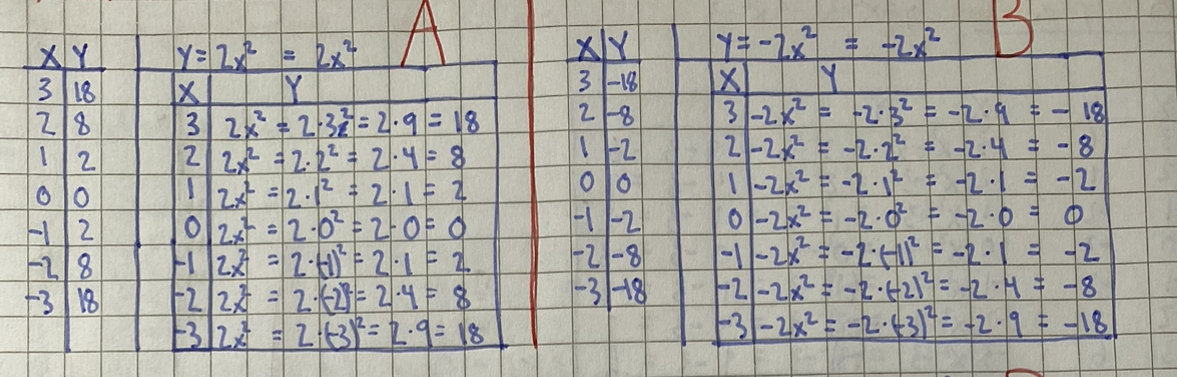 A
X Y
3 18
2 8
1 2
0 0
-1 2
-2 8
-3 18
Y = 2x² = 2x²
X Y
3 2x² = 2·3² = 2·9 = 18
2 2x² = 2·2² = 2·4 = 8
1 2x² = 2·1² = 2·1 = 2
0 2x² = 2·0² = 2·0 = 0
-1 2x² = 2·(-1)² = 2·1 = 2
-2 2x² = 2·(-2)² = 2·4 = 8
-3 2x² = 2·(-3)² = 2·9 = 18
B
X Y
3 -18
2 -8
1 -2
0 0
-1 -2
-2 -8
-3 -18
Y = -2x² = -2x²
X Y
3 -2x² = -2·3² = -2·9 = -18
2 -2x² = -2·2² = -2·4 = -8
1 -2x² = -2·1² = -2·1 = -2
0 -2x² = -2·0² = -2·0 = 0
-1 -2x² = -2·(-1)² = -2·1 = -2
-2 -2x² = -2·(-2)² = -2·4 = -8
-3 -2x² = -2·(-3)² = -2·9 = -18